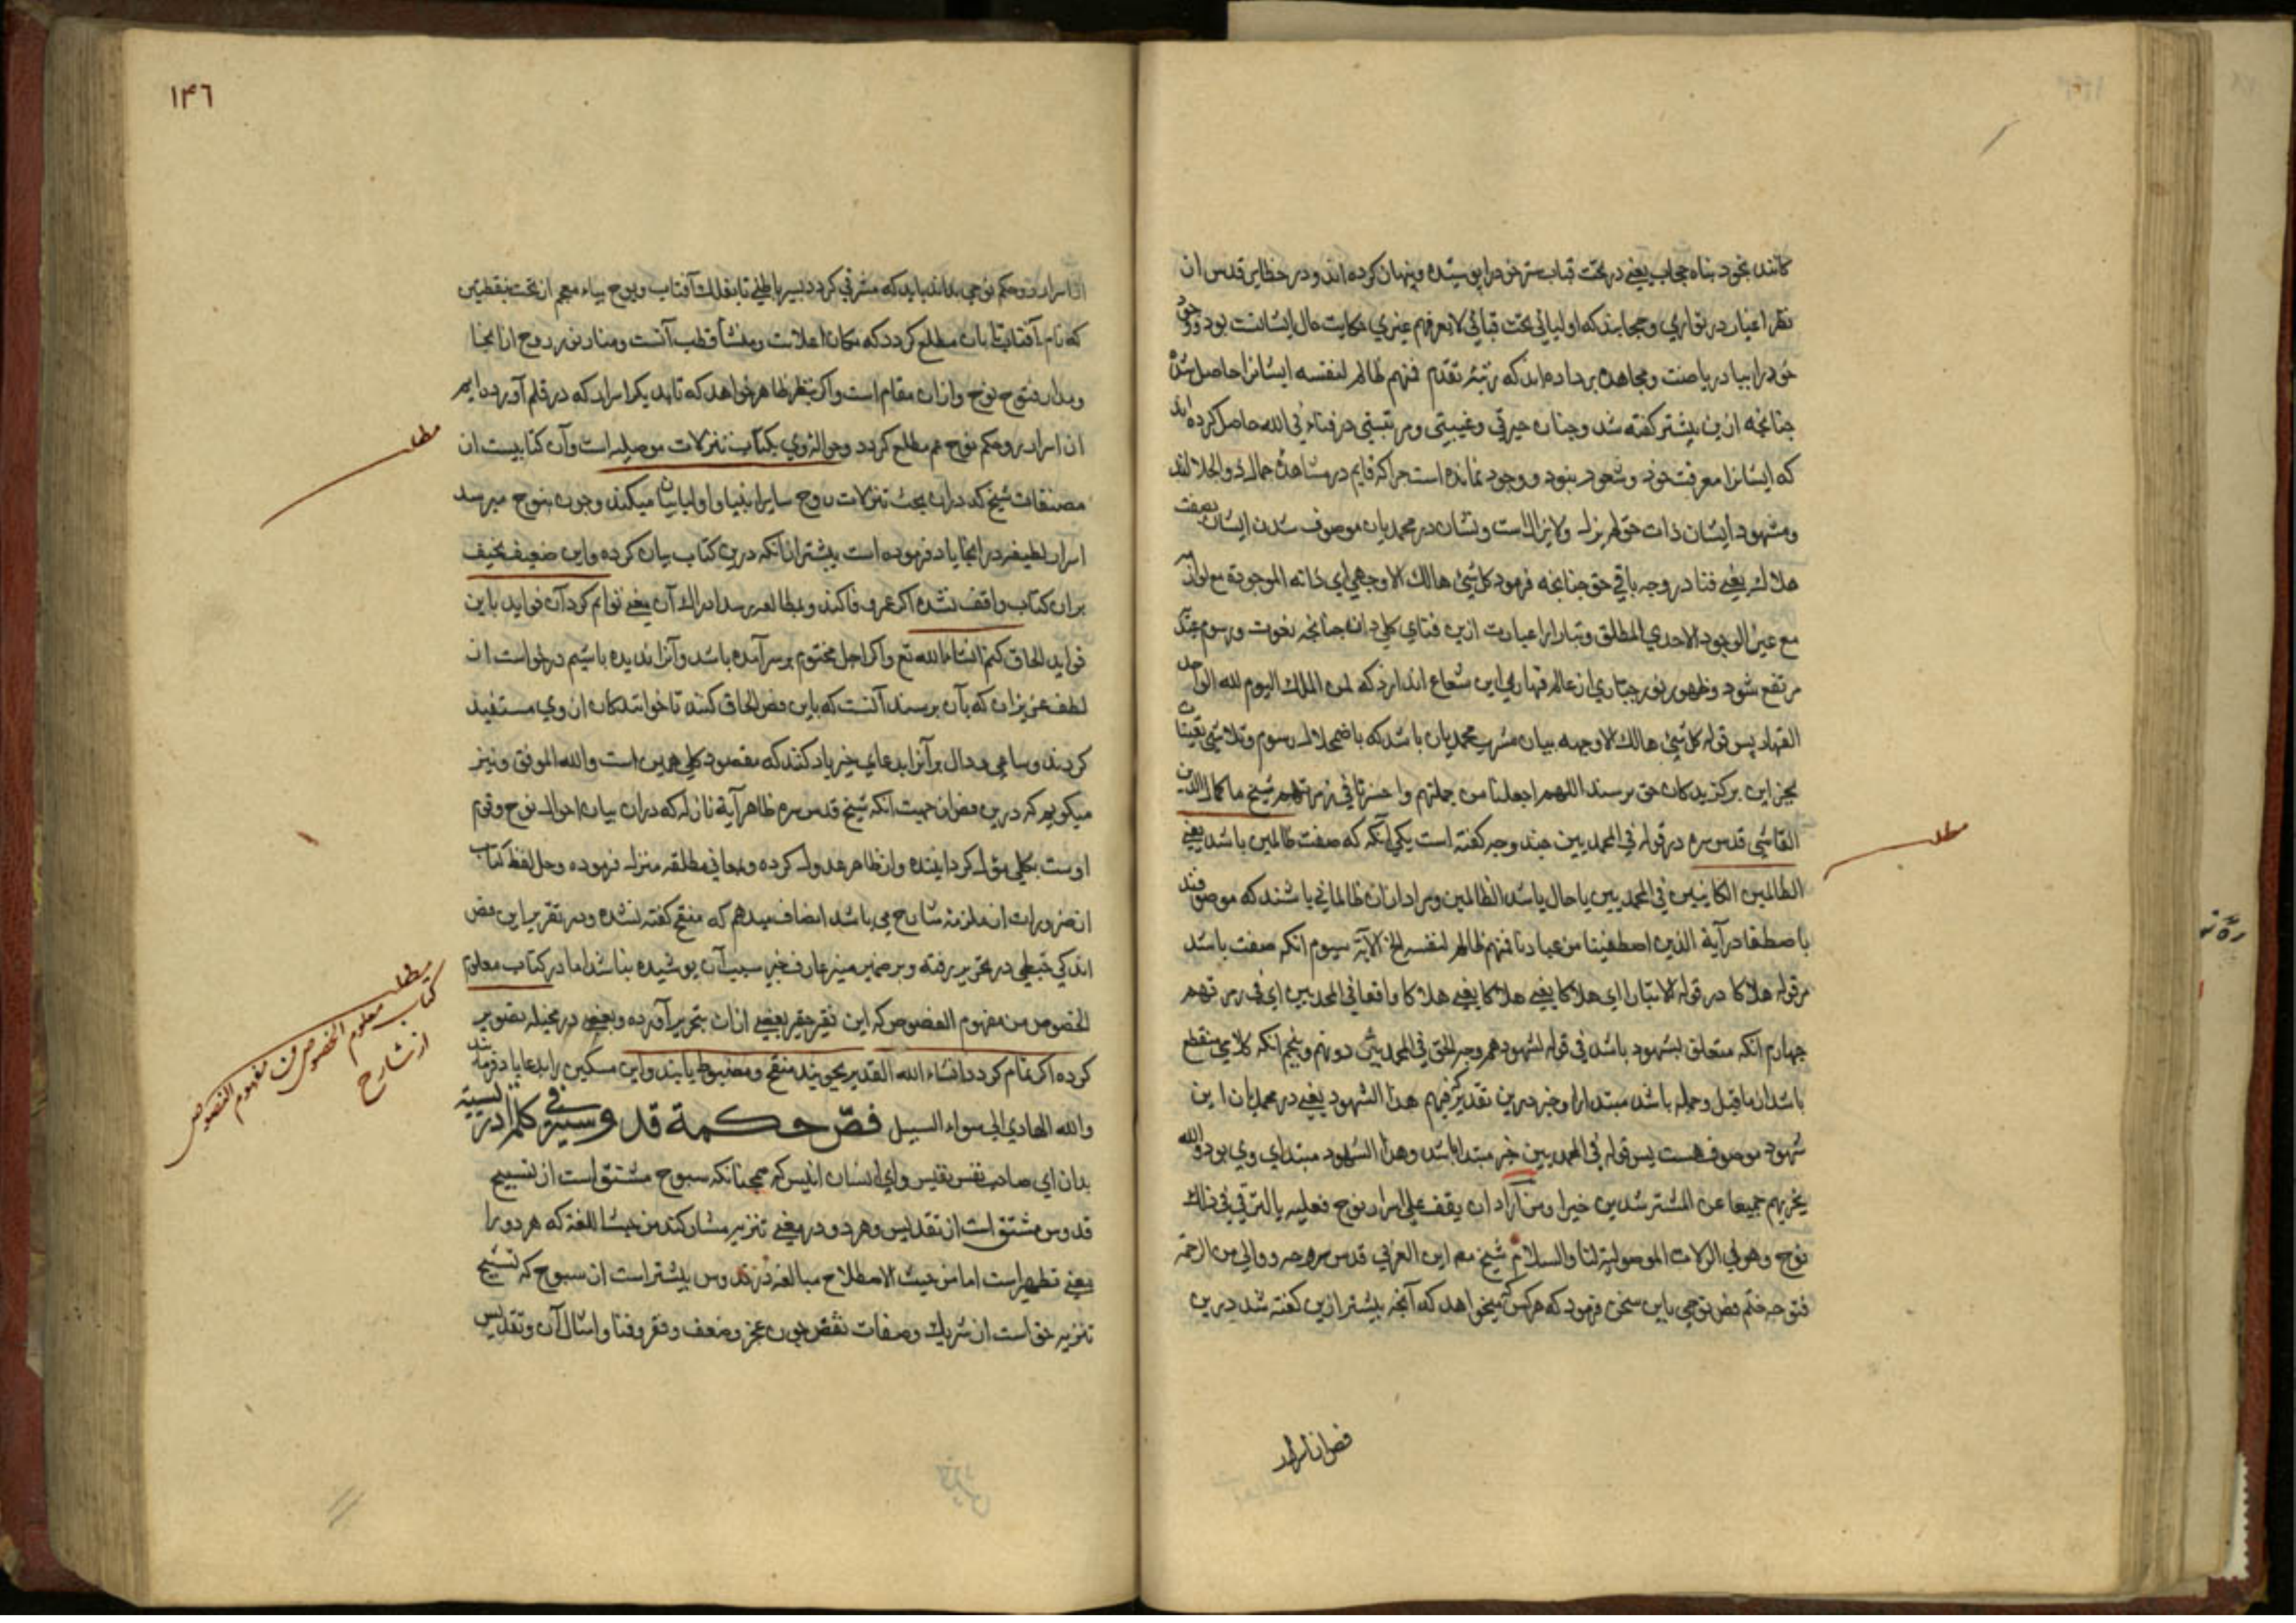 کانند بخود پناه حجاب یعنی در تحت قباب ستر خود را پوشیده و پنهان کرده اند و در حظایر قدس از
نظر اغیار در تواری و حجابند که اولیائی تحت قبائی لا یعرفهم غیری حکایت حال ایشانست بود و وجود
خود را بباد ریاضت و مجاهده برداده اند که رتبهٔ تقدم فمنهم ظالم لنفسه ایشانرا حاصل شده
چنانچه ازین پیشتر گفته شد و چنان حیرتی و غیبتی در فناء فی الله حاصل کرده اند
که ایشانرا معرفت خود و شعور بنبود و وجود نمانده است چراکه قایم در مشاهدهٔ جمال ذو الجلالند
و مشهود ایشان ذات حق لم یزل و لا یزالست و نشان در محمدیان موصوف شدن ایشان بصفت
هلاک یعنی فنا در وجه باقی حق چنانچه فرمود کل شیء هالک الا وجهه ای ذاته الموجودة مع لوازمه
مع عین الوجود الاحدی المطلق و تبارا را عبارت ازین فنای کلی دان چنانچه نعوت و رسوم
مرتفع شود و ظهور نور جباری از عالم قهاری این شعاع اندازد که لمن الملک الیوم لله الواحد
القهار پس قوله کل شیء هالک الا وجهه بیان مشرب محمدیان باشد که باضمحلال رسوم و تلاشی تعینات
بجز این برگزیدگان حق نرسند اللهم اجعلنا من جملتهم و احشرنا فی زمرتهم شیخ ما کمال الدین
القاشی قدس سره در قوله فی المحمدیین چند وجه گفته است یکی آنکه که صفت ظالمین باشد یعنی
الظالمین الکاینین فی المحمدیین یا حال باشد الظالمین و مراد از آن ظالمانی باشند که موصوفند
باصطفا در آیة الذین اصطفینا من عبادنا فمنهم ظالم لنفسه الخ الآیة سیوم آنکه صفت باشد
مر قوله هلاکا در قوله الا تبارا ای هلاکا یعنی هلاکا یعنی هلاکا واقعا فی المحمدیین ای فی زمرتهم
چهارم آنکه متعلق بشهود باشد فی قوله لشهودهم وجه الحق فی المحمدیین دونهم و پنجم آنکه کلامی منقطع
باشد از ما قبل و جمله باشد مبتدا را و خبر درین تقدیر که فیهم هذا الشهود یعنی در محمدیان این
شهود موصوف هست پس قوله فی المحمدیین خبر مبتدا باشد و هذا الشهود مبتدای وی بود و الله
یجزیهم جمیعا عن المسترشدین خیرا و من اراد ان یقف علی اسرار نوح فعلیه بالترقی فی فلک
نوح و هو فی التنزلات الموصلیة لنا و السلام شیخ مع ابن العربی قدس سره
فتوحه ختم فص نوحی باین سخن فرمود که هر کس میخواهد که آنچه بیشتر ازین گفته شد درین
فص از اسرار
۱۴۶
از اسرار و حکم نوحی بداند باید که مترقی گردد بسیر باطنی تا بفلک آفتاب و یوح بیاء معجم از تحت بنقطتین
که نام آفتابست بآن مطلع گردد که مکان اعلاست و منشأ قطب آنست و منار نور روح از اینجا
و مدار فتوح نوح و از آن مقام است و اگر بنظر ظاهر خواهد که تا بدیگر اسرار که در قلم آورده ایم
از اسرار و حکم نوح هم مطلع گردد و حوالهٔ وی بکتاب تنزلات موصلیه است و آن کتابیست از
مصنفات شیخ که در آن بحث تنزلات روح سایر انبیا و اولیا بیان میکند و چون بنوح میرسد
اسرار لطیفه در آنجا یاد فرموده است بیشتر از آنکه درین کتاب بیان کرده و این ضعیف نحیف
بر آن کتاب واقف نشده اگر عمر وفا کند و بمطالعه رسد ادراک آن معنی توانم کرد آن فواید باین
فواید الحاق کنم انشاء الله تع و اگر اجل محتوم بر سر آمده باشد و آنرا ندیده باشیم درخواست از
لطف عزیزان که بآن برسند آنست که باین فص الحاق کنند تا خوانندگان از وی مستفید
گردند و ساعی و دال بر آنرا بدعای خیر یاد کنند که مقصود کلی همین است و الله الموفق و نیز
میگویم که درین فص از جهت آنکه شیخ قدس سره ظاهر آیة نازله که در آن بیان احوال نوح و قوم
اوست بکلی مؤل گردانیده و از ظاهر عدول کرده و بمعانی مطلقه منزل فرموده و حل لفظ کتاب
از ضرورات از ملزمهٔ شارح می باشد انصاف میدهم که منقح گفته نشده و در تقریر این فص
اندکی خبطی در تحریر رفته و بر ضمیر منیر عارف خبیر سبب آن پوشیده نباشد اما در کتاب معلوم
الخصوص من مفهوم الفصوص که این فقیر حقیر بعضی از آن بتحریر آورده و بعضی در مخیله تصویر
کرده اگر تمام گردد انشاء الله القدیر بجویند منقح و مضبوط یابند و این مسکین را بدعا یاد فرمایند
و الله الهادی الی سواء السبیل فصّ حکمة قدوسیة فی کلمة ادریسیة
بدان ای صاحب نفس نفیس و ای انسان انیس که همچنانکه سبوح مشتق است از تسبیح
قدوس مشتق است از تقدیس و هر دو در معنی تنزیه مشارکند من حیث اللغة که هر دو را
معنی تطهیر است اما من حیث الاصطلاح مبالغه در قدوس بیشتر است از سبوح که تسبیح
تنزیه حق است از شریک و صفات نقص چون عجز و ضعف و فقر و فنا و امثال آن و تقدیس
مطلب
مطلب
مطلب
کتاب معلوم الخصوص من مفهوم الفصوص
از شارح